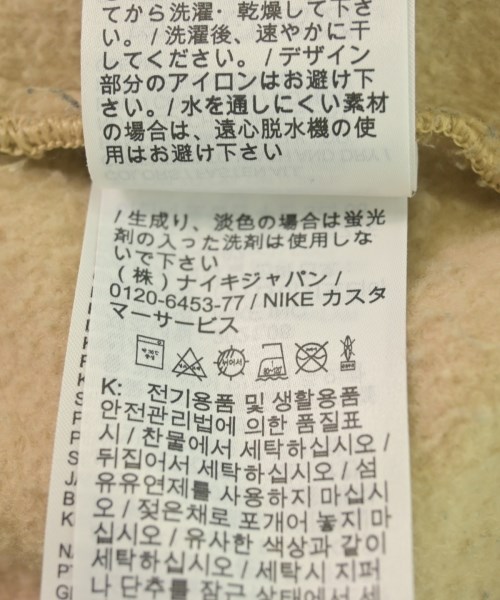 てから洗濯・乾燥して下さ
い。/ 洗濯後、速やかに干
してください。/ デザイン
部分のアイロンはお避け下
さい。/ 水を通しにくい素材
の場合は、遠心脱水機の使
用はお避け下さい
/ 生成り、淡色の場合は蛍光
剤の入った洗剤は使用しな
いで下さい
(株)ナイキジャパン /
0120-6453-77 / NIKE カスタ
マーサービス
K: 전기용품 및 생활용품
안전관리법에 의한 품질표
시 / 찬물에서 세탁하십시오 /
뒤집어서 세탁하십시오 / 섬
유유연제를 사용하지 마십시
오 / 젖은채로 포개어 놓지 마
십시오 / 유사한 색상과 같이
세탁하십시오 / 세탁시 지퍼
나 단추를 잠근 상태에서 세